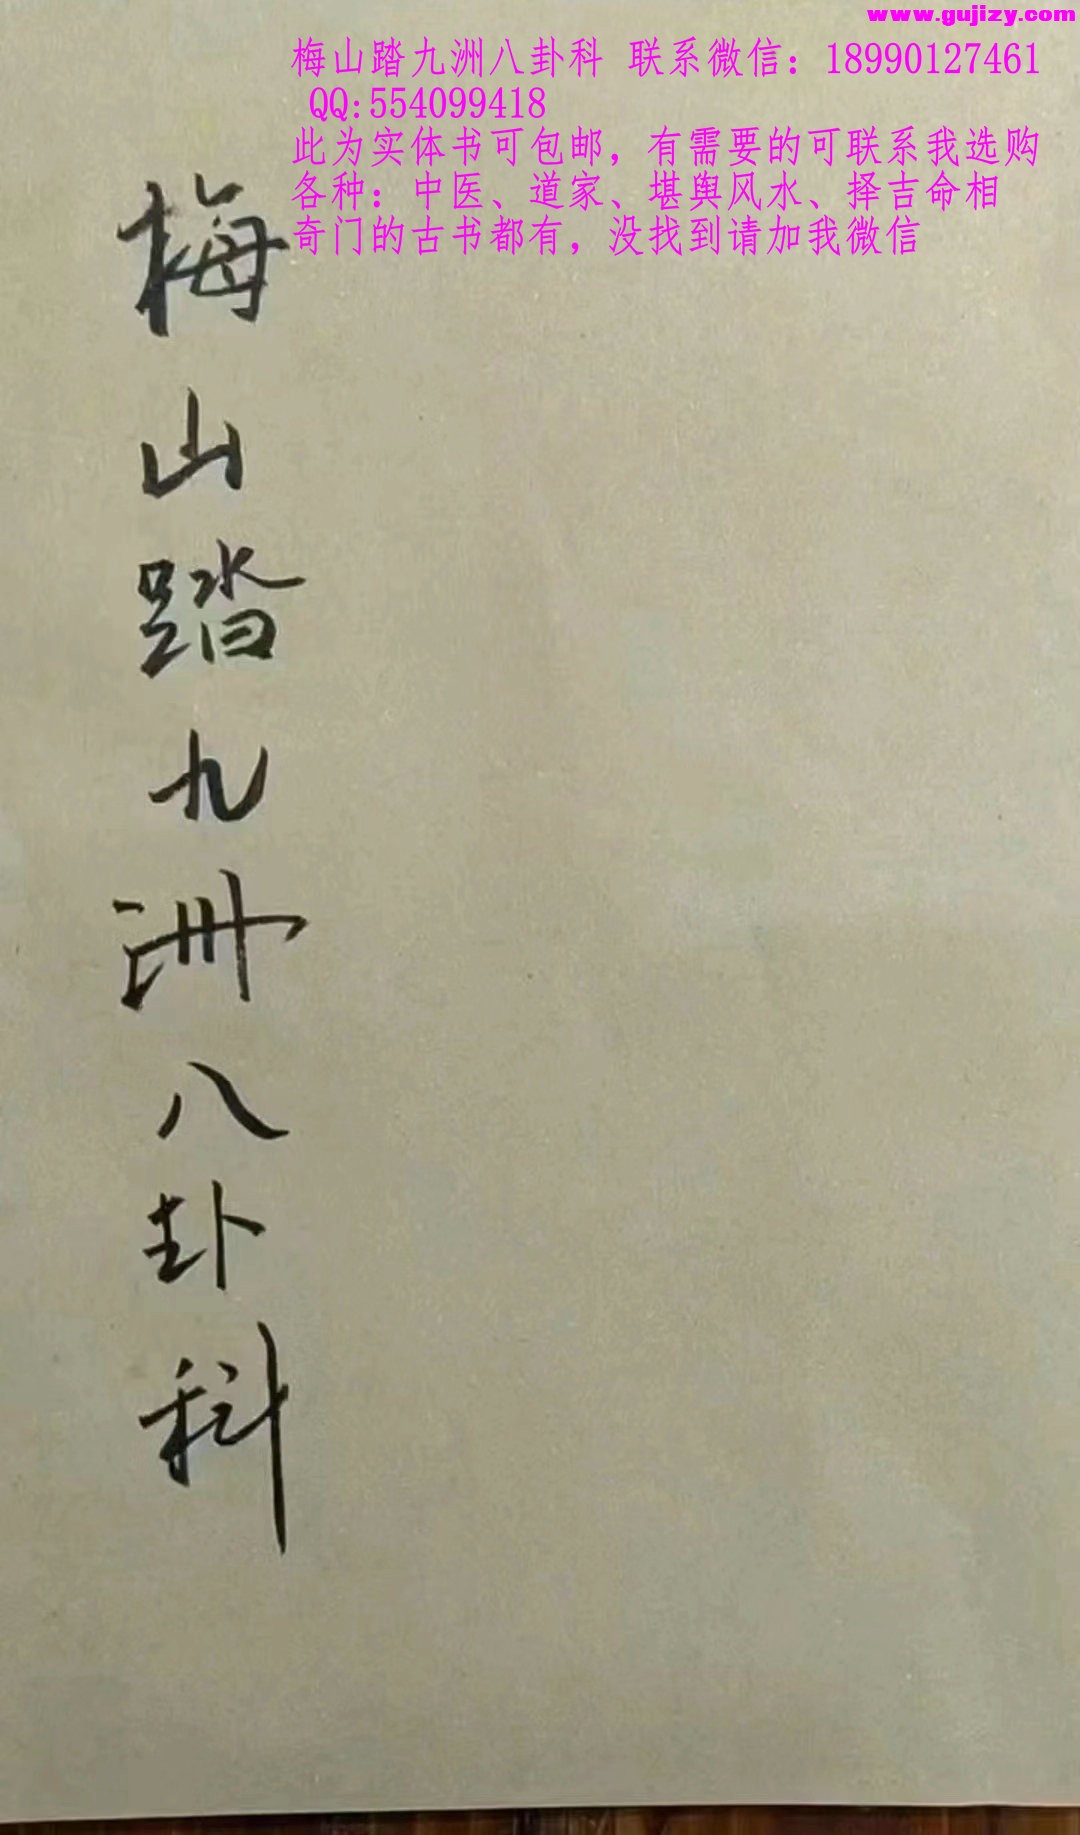 www.gujizy.com
梅山踏九洲八卦科 联系微信：18990127461
QQ:554099418
此为实体书可包邮，有需要的可联系我选购
各种：中医、道家、堪舆风水、择吉命相
奇门的古书都有，没找到请加我微信
梅山踏九洲八卦科